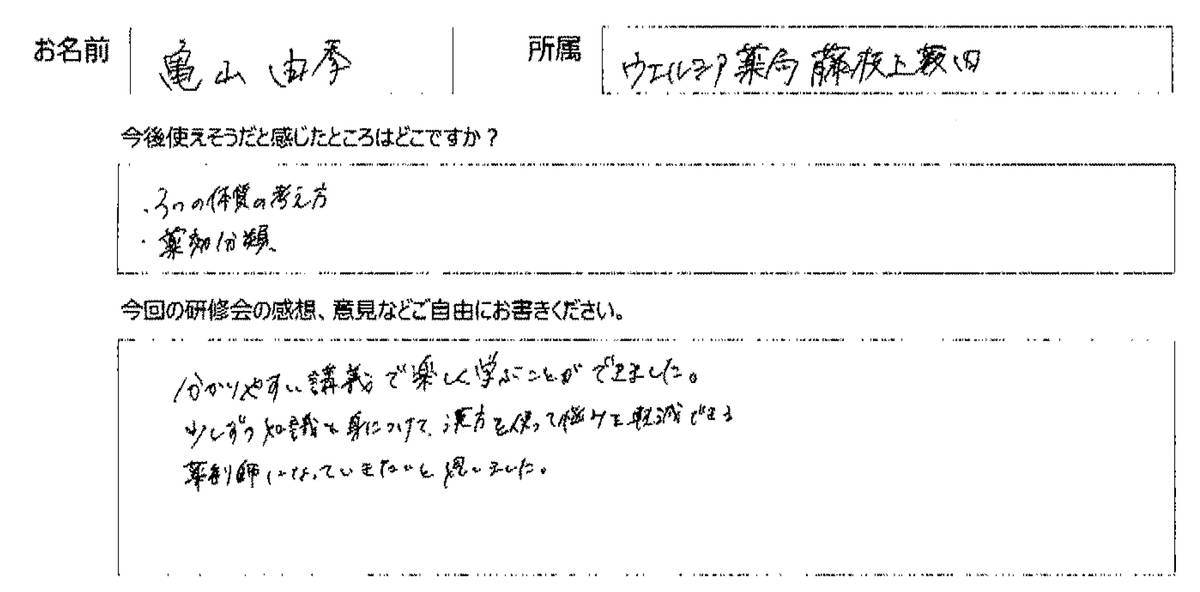 お名前 亀山 由季 所属 ウエルシア薬局 藤枝上薮田
今後使えそうだと感じたところはどこですか?
・3つの体質の考え方
・薬効分類、
今回の研修会の感想、意見などご自由にお書きください。
分かりやすい講義で楽しく学ぶことができました。
少しずつ知識を身につけて、漢方を使って悩みを軽減できる
薬剤師になっていきたいと思いました。